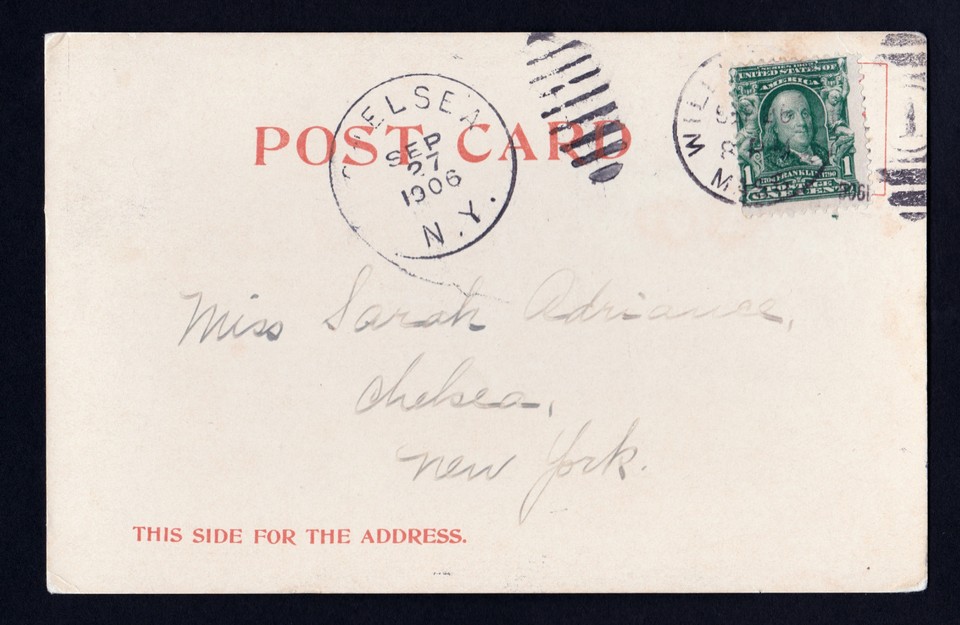 POST CARD
CHELSEA
SEP
27
1906
N.Y.
WILLI
M
1906
SERIES 1902
UNITED STATES OF
AMERICA
1 1
1706 FRANKLIN 1790
POSTAGE
ONE CENT
Miss Sarah Adriance,
Chelsea,
New York.
THIS SIDE FOR THE ADDRESS.